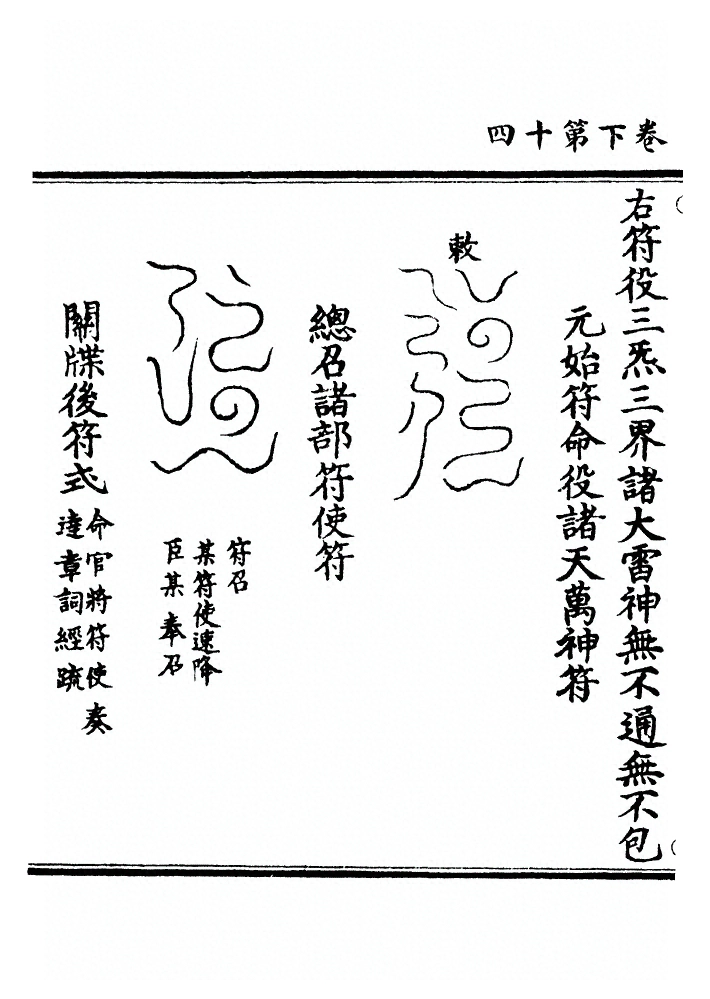 卷下第十四
右符役三炁三界諸大雷神無不通無不包
元始符命役諸天萬神符
敕
總召諸部符使符
符召
某符使速降
臣某奉召
關牒後符式
命官將符使奏
達章詞經疏